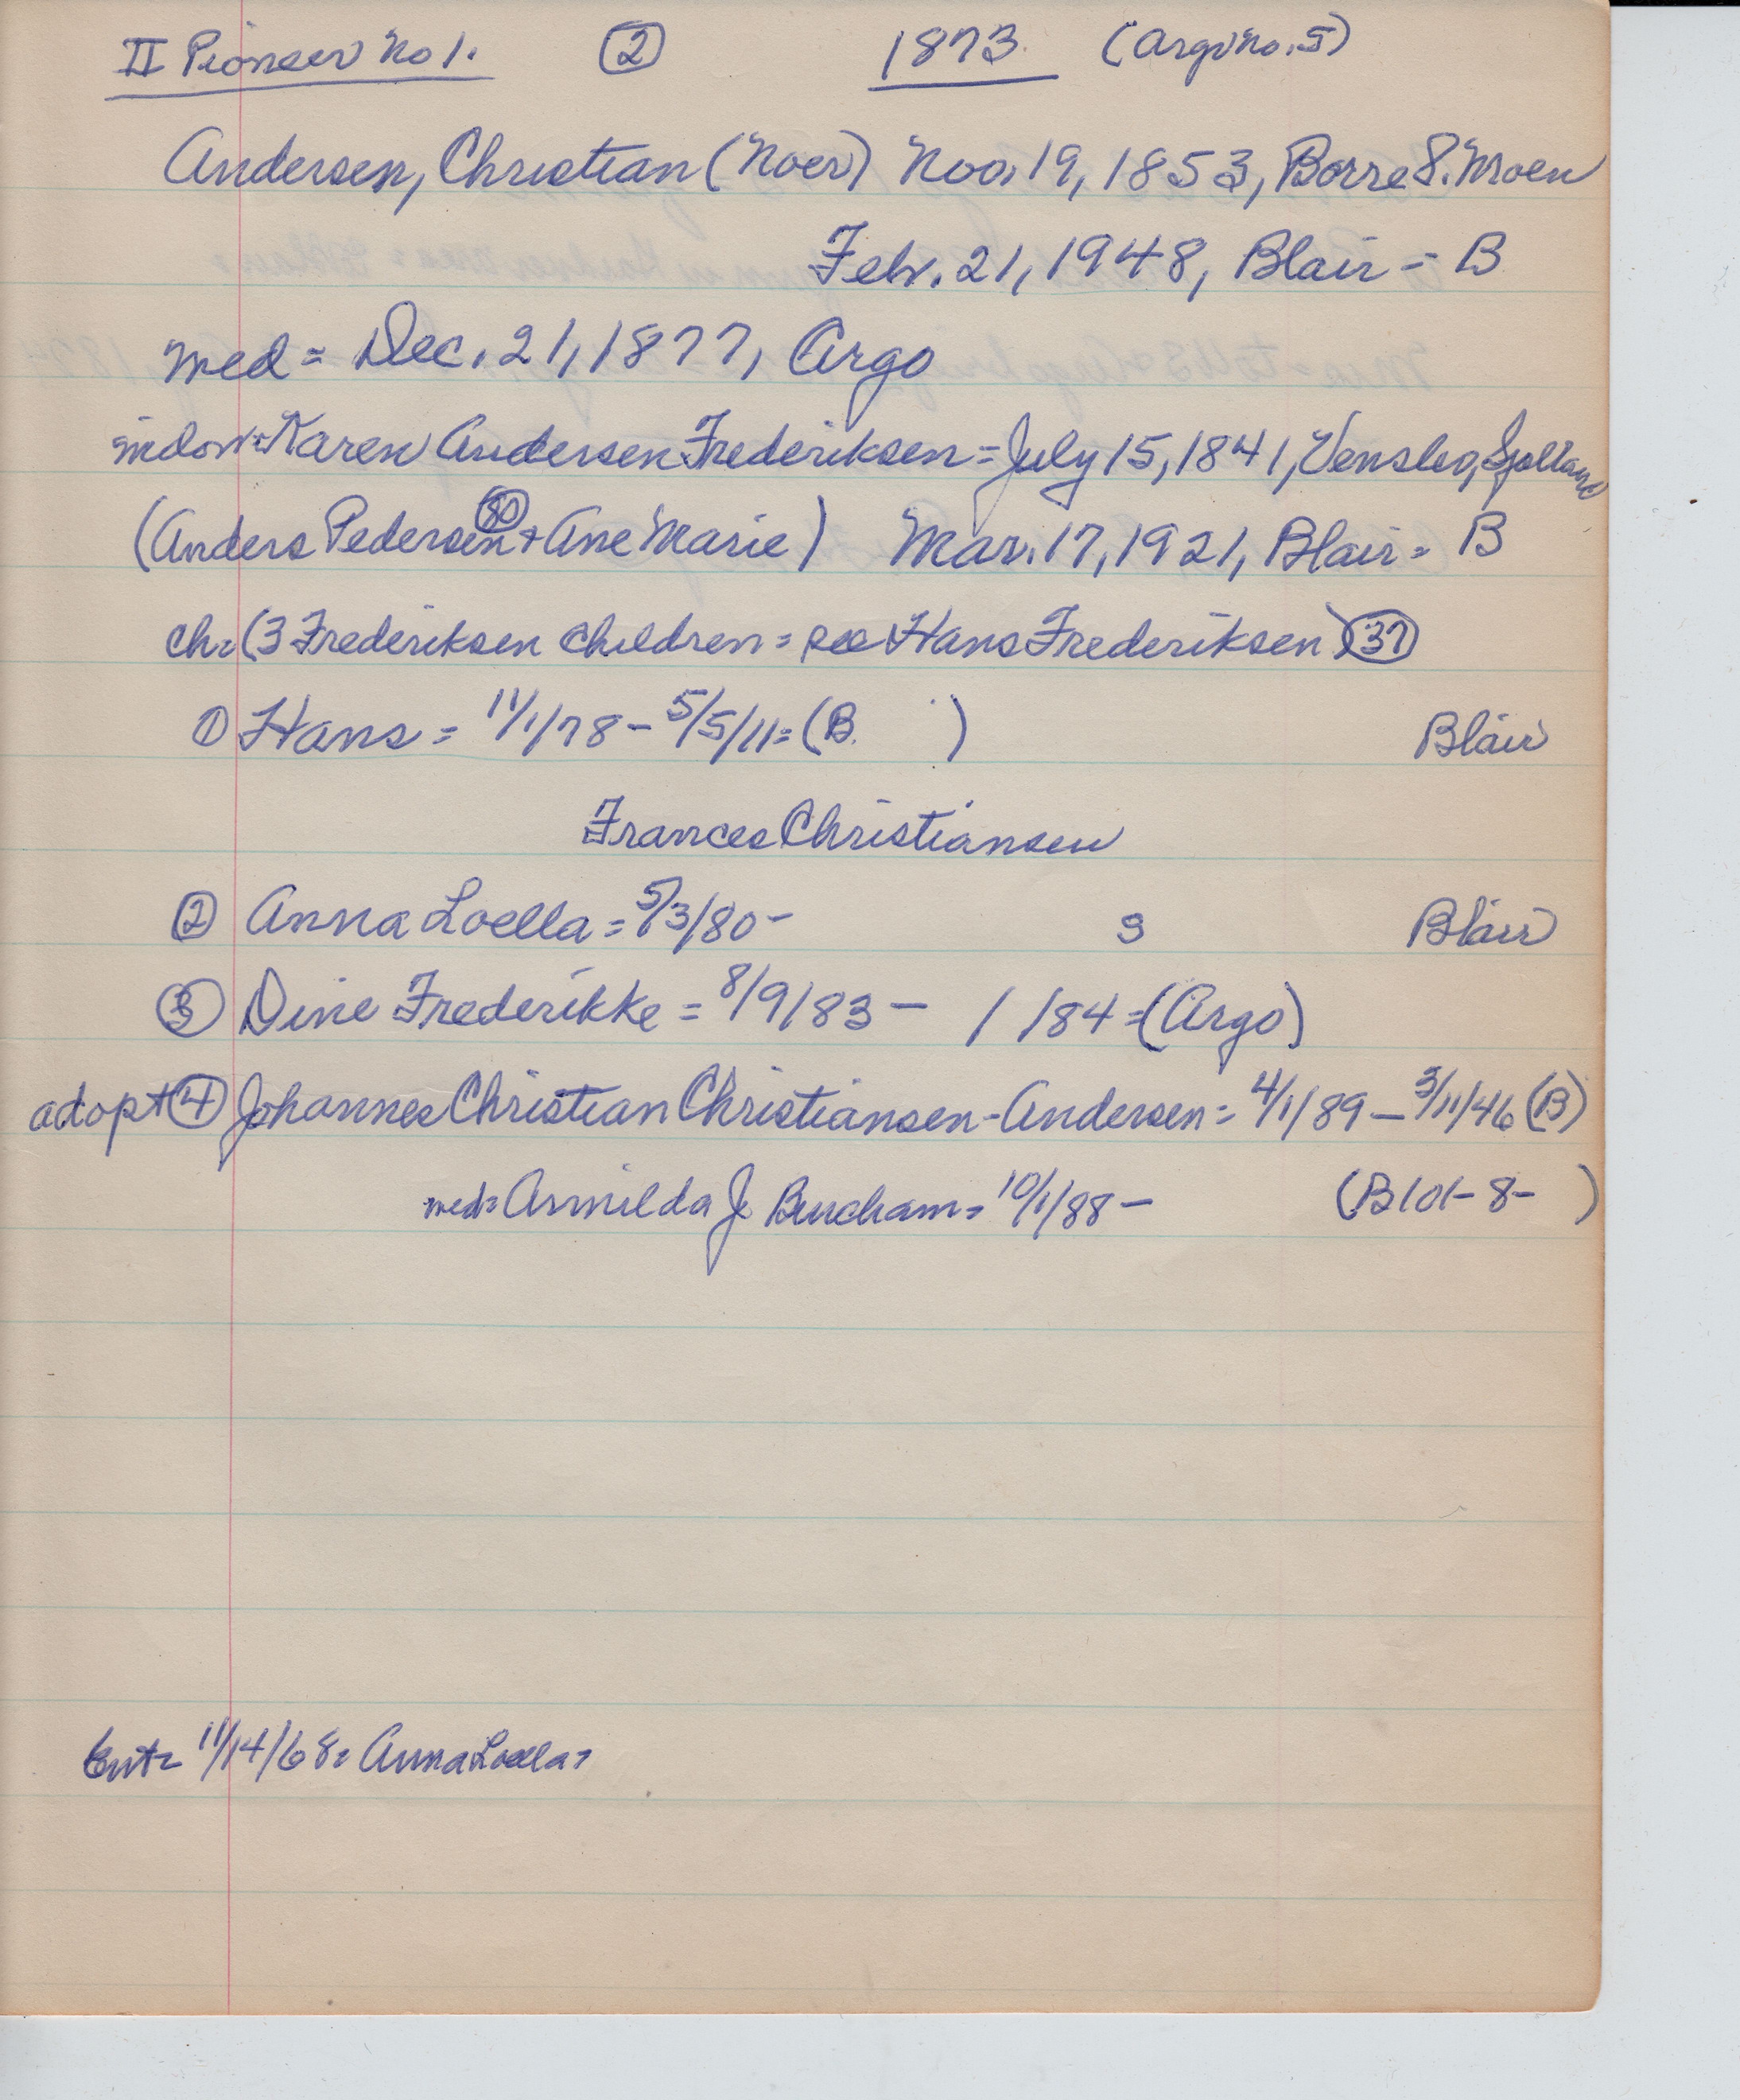 II Pioneer No 1. ② 1873 (Argo no. 5)
Andersen, Christian (Noer) Nov. 19, 1853, Borre S. Moen
Feb. 21, 1948, Blair = B
med = Dec. 21, 1877, Argo
widow = Karen Andersen Frederiksen = July 15, 1841, Venslev, Sjolland
(Anders Pedersen + Ane Marie) Mar. 17, 1921, Blair = B
ch = (3 Frederiksen children = see Hans Frederiksen) 37
① Hans = 11/1/78 - 5/5/11 = (B. ) Blair
Frances Christiansen
② Anna Loella = 5/3/80 - S Blair
③ Dine Frederikke = 8/9/83 - / /84 = (Argo)
adopt ④ Johannes Christian Christiansen-Andersen = 4/1/89 - 3/11/46 (B)
med = Armilda J. = 10/1/88 - (B101-8- )
11/14/68 = Anna Loella =